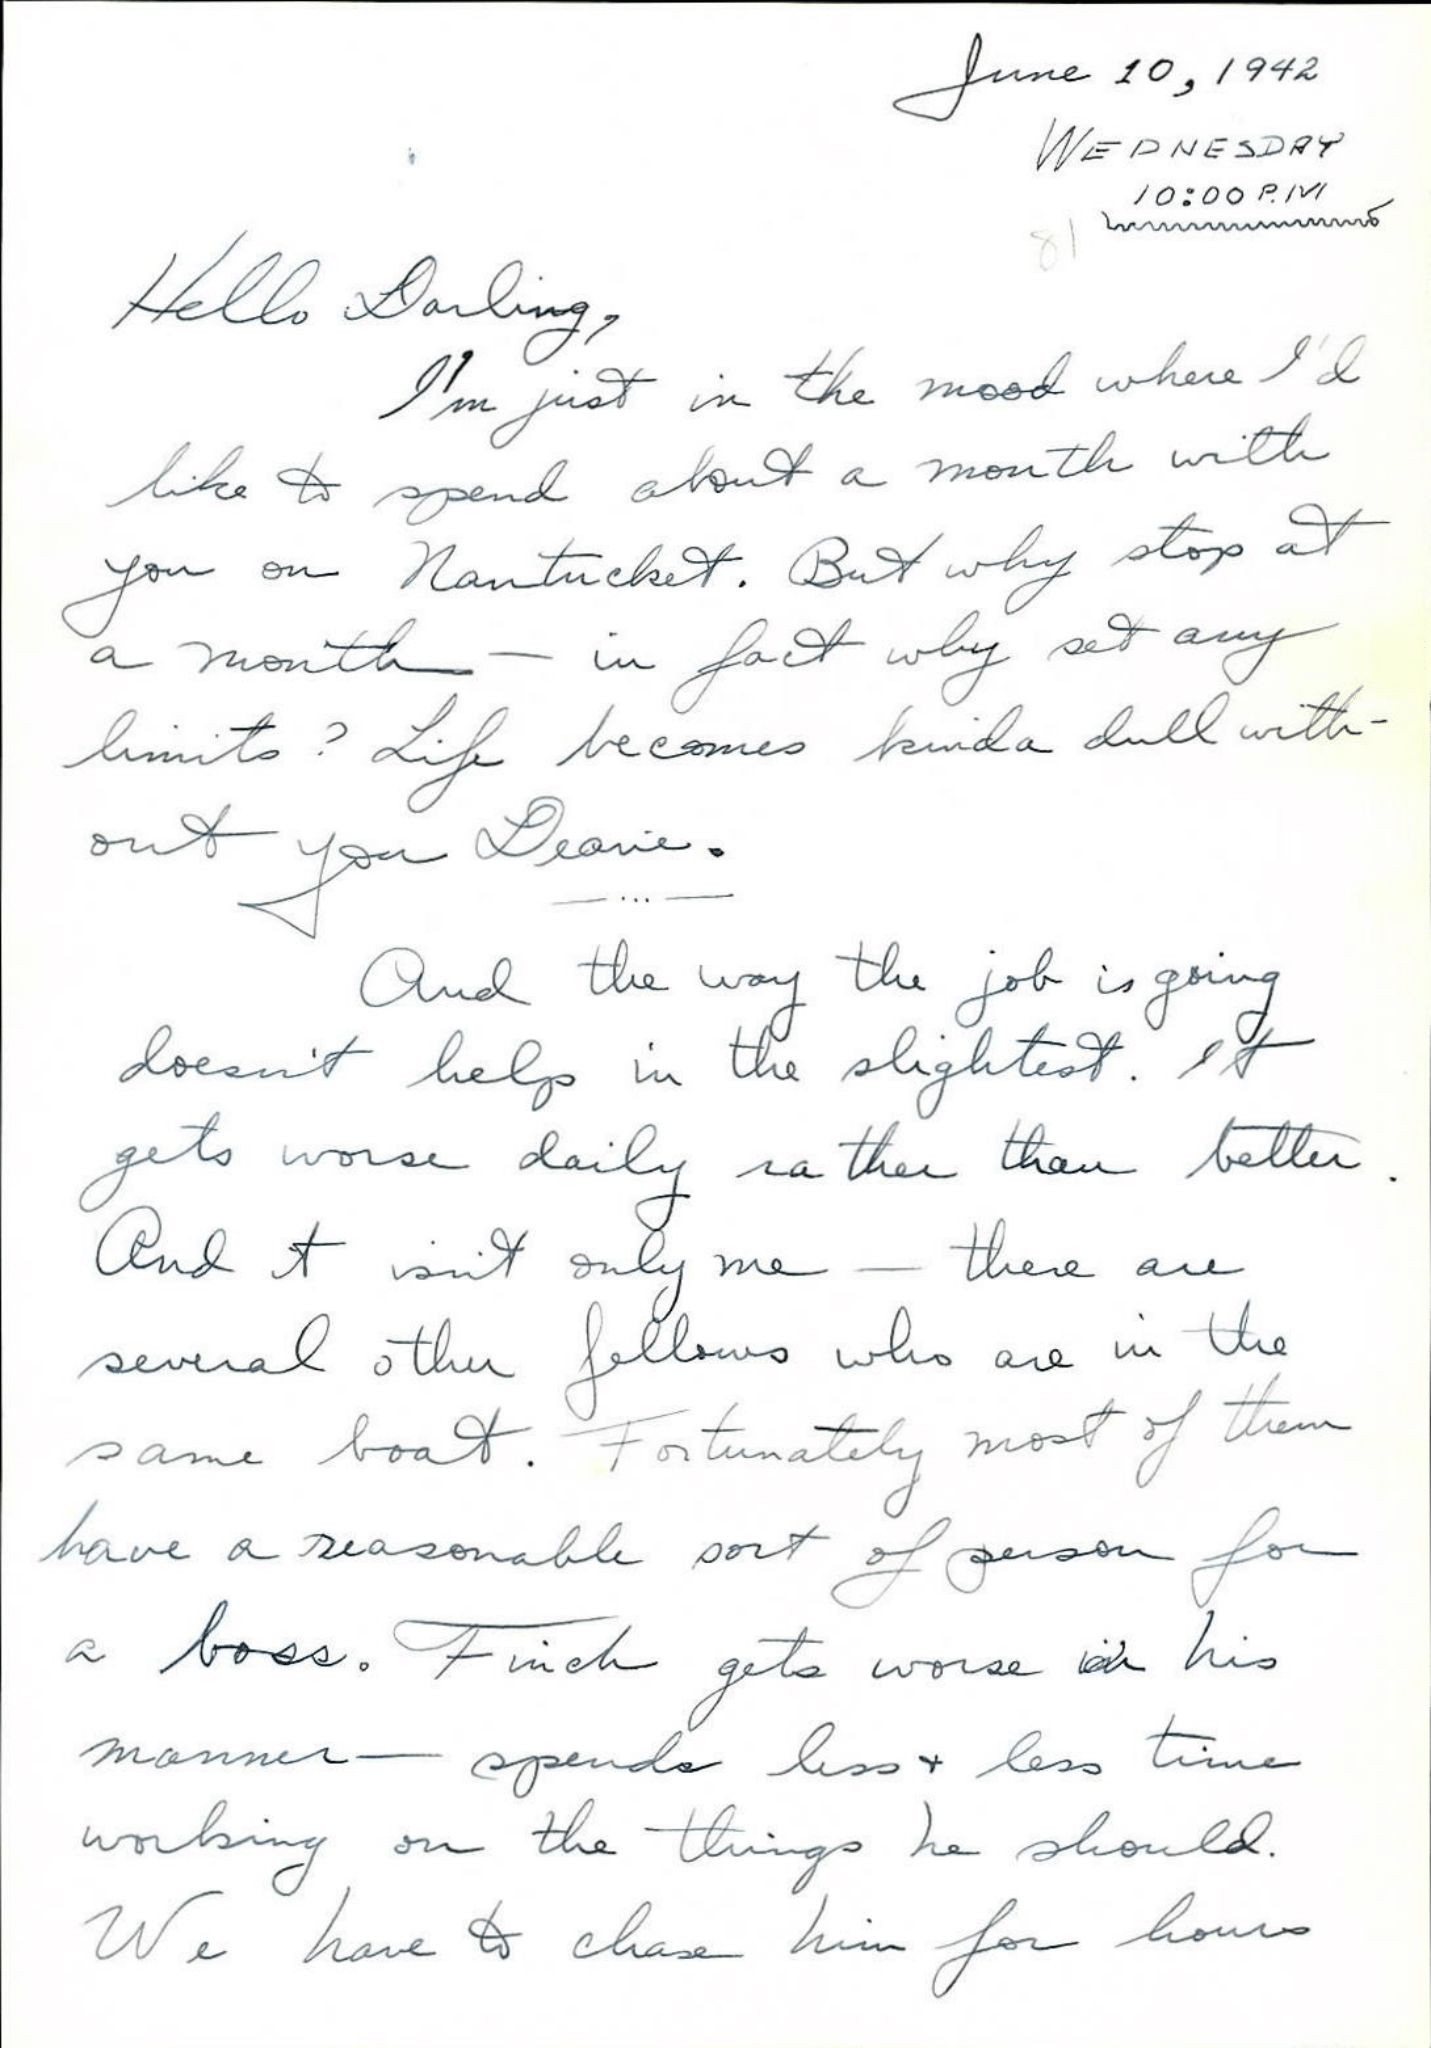 June 10, 1942
WEDNESDAY
10:00 P.M
81
Hello Darling,
I'm just in the mood where I'd
like to spend about a month with
you on Nantucket. But why stop at
a month — in fact why set any
limits? Life becomes kinda dull with-
out you Dearie.
And the way the job is going
doesn't help in the slightest. It
gets worse daily rather than better.
And it isn't only me — there are
several other fellows who are in the
same boat. Fortunately most of them
have a reasonable sort of person for
a boss. Finch gets worse in his
manner — spends less + less time
working on the things he should.
We have to chase him for hours